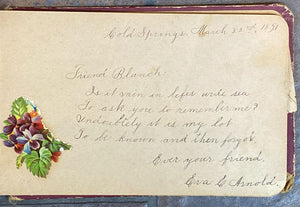 Cold Springs, March 22nd, 1891
Friend Blanch:
Is it vain in lifes wide sea
To ask you to remember me?
Undoubtely it is my lot
To be known and then forgot
Ever your friend,
Eva C Arnold.